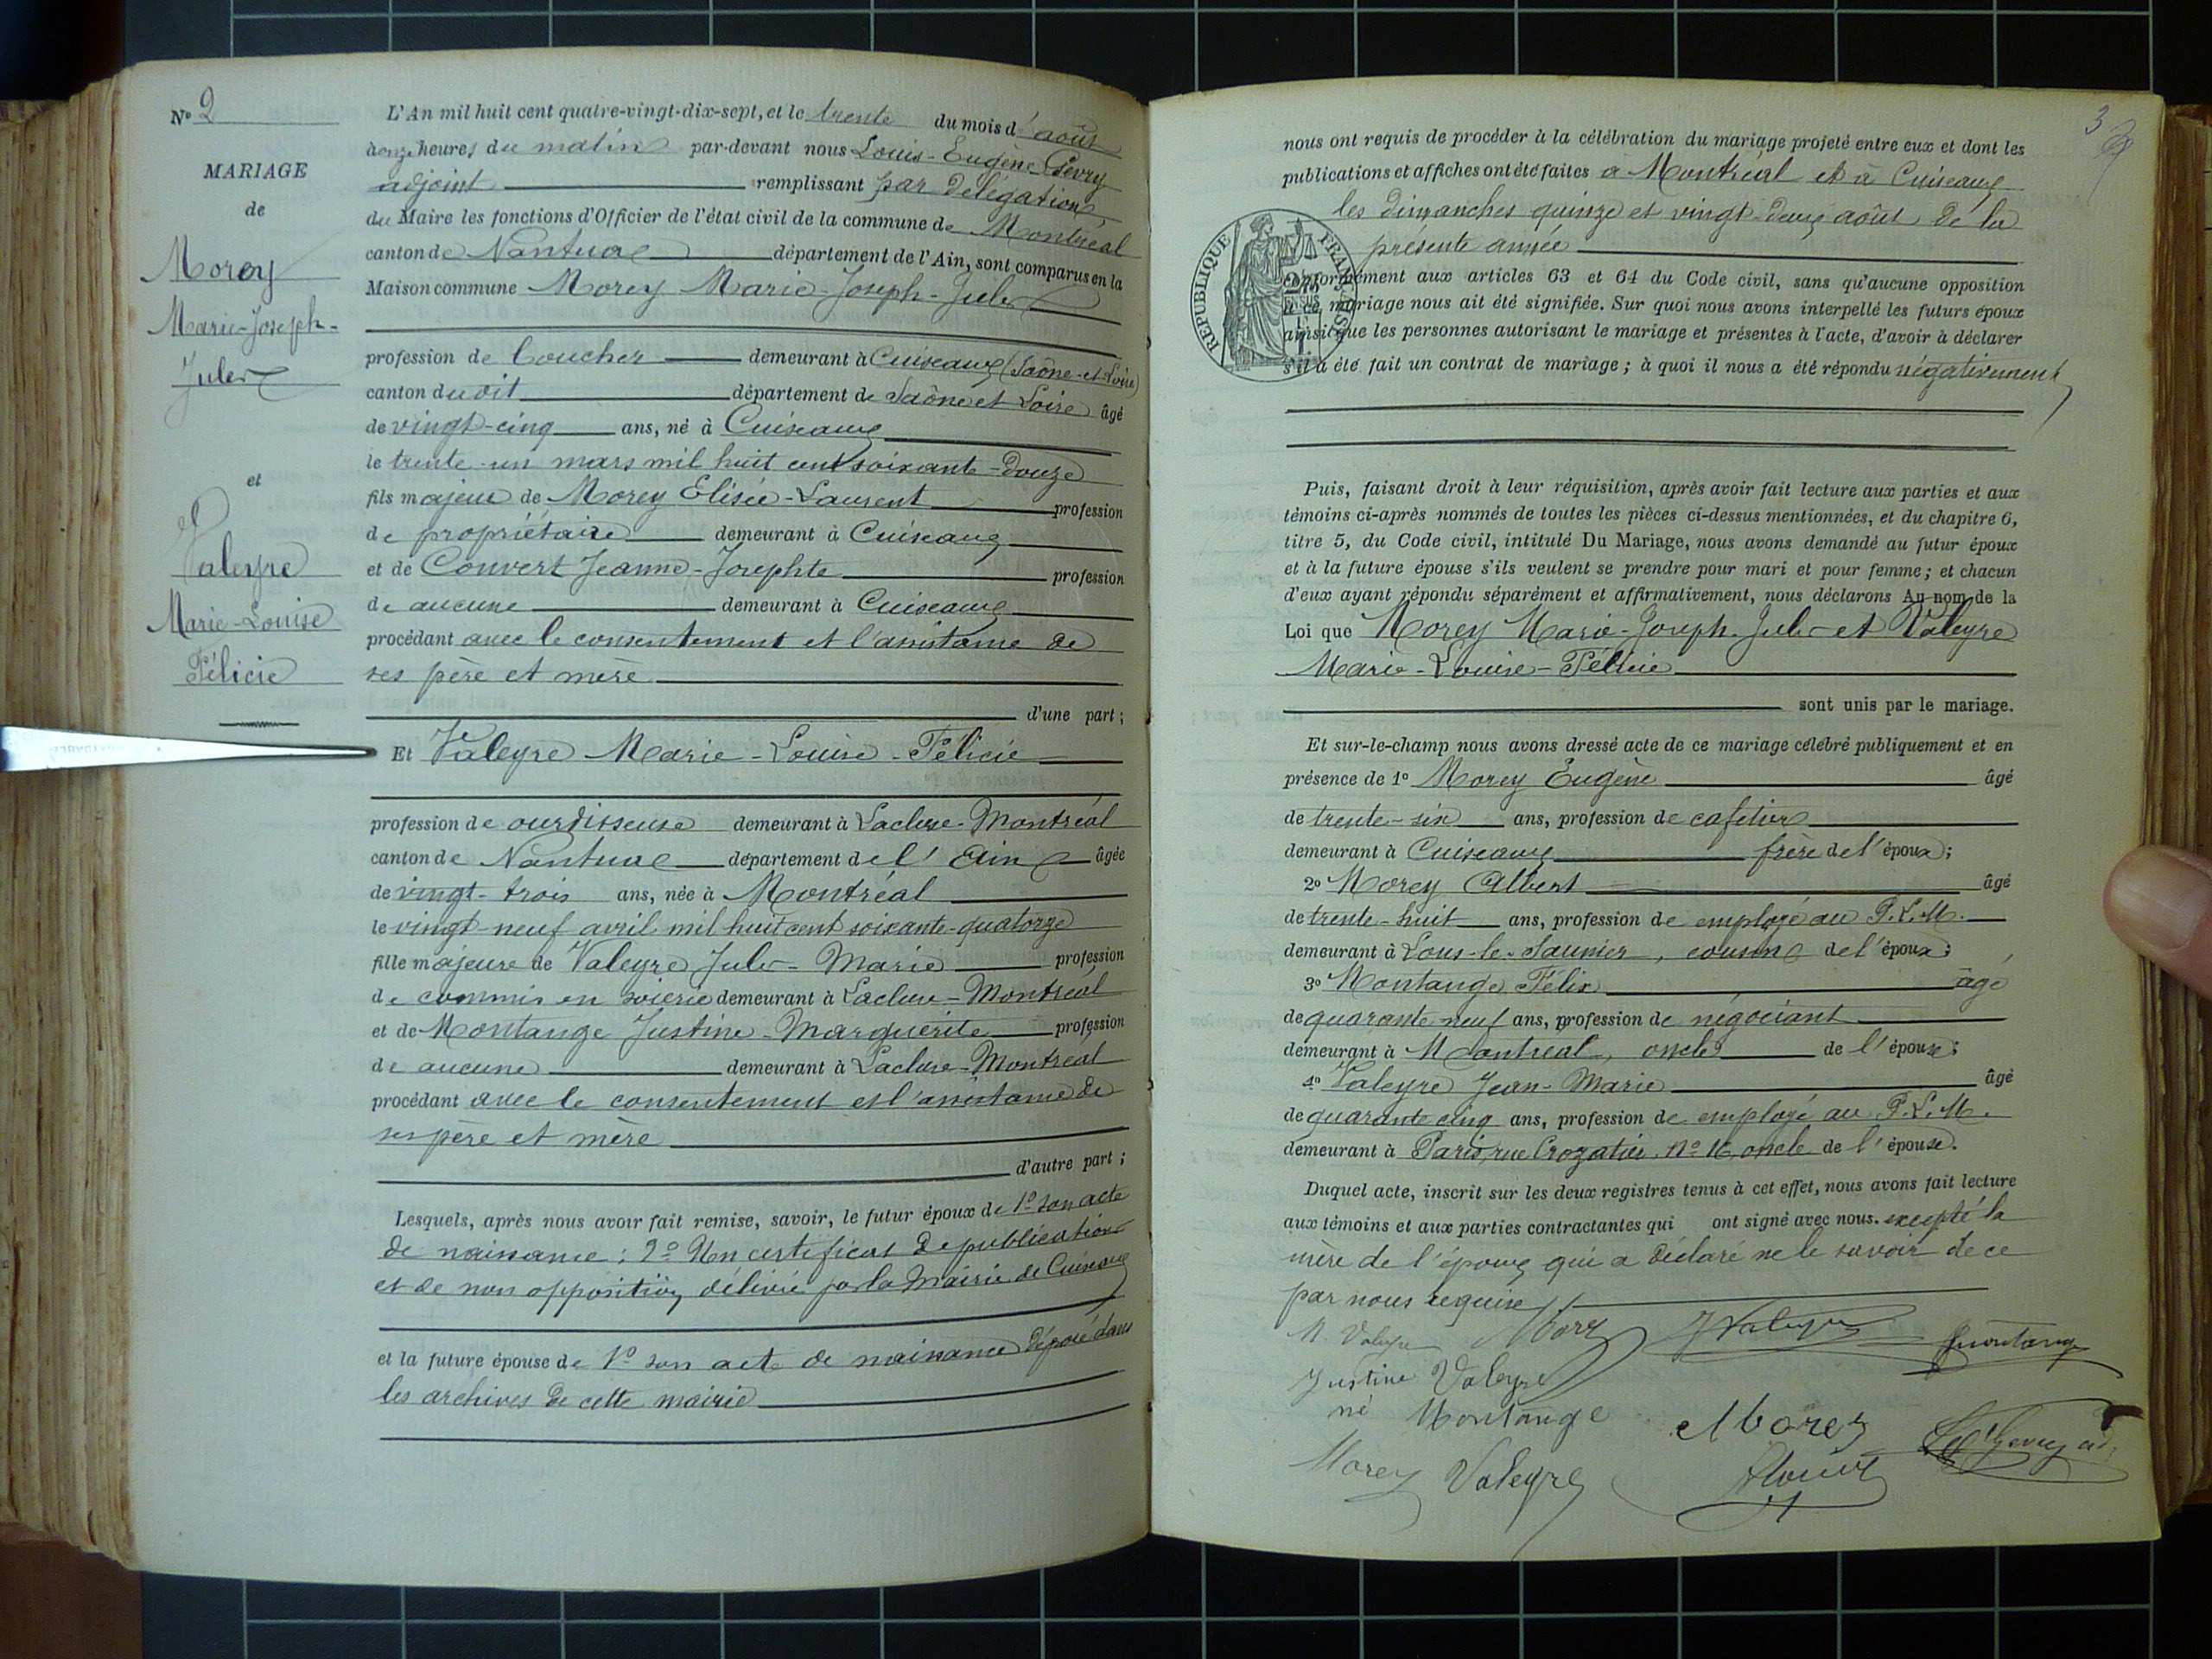 N° 2
MARIAGE
de
Morey
Marie-Joseph-
Jules
et
Valeyre
Marie-Louise
Félicie
L'An mil huit cent quatre-vingt-dix-sept, et le trente du mois d'août
à onze heures du matin par-devant nous Louis-Eugène Gevry
adjoint remplissant par délégation
du Maire les fonctions d'Officier de l'état civil de la commune de Montréal
canton de Nantua département de l'Ain, sont comparus en la
Maison commune Morey Marie-Joseph-Jules
profession de boucher demeurant à Cuiseaux (Saône-et-Loire)
canton dudit département de Saône et Loire âgé
de vingt-cinq ans, né à Cuiseaux
le trente-un mars mil huit cent soixante-douze
fils majeur de Morey Elisée-Laurent profession
de propriétaire demeurant à Cuiseaux
et de Convert Jeanne-Josephte profession
de aucune demeurant à Cuiseaux
procédant avec le consentement et l'assistance de
ses père et mère
d'une part;
Et Valeyre Marie-Louise-Félicie
profession de ourdisseuse demeurant à Lacluse-Montréal
canton de Nantua département de l'Ain âgée
de vingt-trois ans, née à Montréal
le vingt-neuf avril mil huit cent soixante-quatorze
fille majeure de Valeyre Jules-Marie profession
de commis en soierie demeurant à Lacluse-Montréal
et de Montange Justine-Marguerite profession
de aucune demeurant à Lacluse-Montréal
procédant avec le consentement et l'assistance de
ses père et mère
d'autre part;
Lesquels, après nous avoir fait remise, savoir, le futur époux de 1° son acte
de naissance; 2° Un certificat de publication
et de non opposition, délivré par la Mairie de Cuiseaux
et la future épouse de 1° son acte de naissance déposé dans
les archives de cette mairie
3
nous ont requis de procéder à la célébration du mariage projeté entre eux et dont les
publications et affiches ont été faites à Montréal et à Cuiseaux
les dimanches quinze et vingt-deux août de la
présente année
REPUBLIQUE FRANÇAISE
conformément aux articles 63 et 64 du Code civil, sans qu'aucune opposition
à ce mariage nous ait été signifiée. Sur quoi nous avons interpellé les futurs époux
ainsi que les personnes autorisant le mariage et présentes à l'acte, d'avoir à déclarer
s'il a été fait un contrat de mariage; à quoi il nous a été répondu négativement
Puis, faisant droit à leur réquisition, après avoir fait lecture aux parties et aux
témoins ci-après nommés de toutes les pièces ci-dessus mentionnées, et du chapitre 6,
titre 5, du Code civil, intitulé Du Mariage, nous avons demandé au futur époux
et à la future épouse s'ils veulent se prendre pour mari et pour femme; et chacun
d'eux ayant répondu séparément et affirmativement, nous déclarons Au nom de la
Loi que Morey Marie-Joseph-Jules et Valeyre
Marie-Louise-Félicie
sont unis par le mariage.
Et sur-le-champ nous avons dressé acte de ce mariage célébré publiquement et en
présence de 1° Morey Eugène âgé
de trente-six ans, profession de cafetier
demeurant à Cuiseaux frère de l'époux;
2° Morey Albert âgé
de trente-huit ans, profession de employé au P.L.M.
demeurant à Lons-le-Saunier, cousin de l'époux;
3° Montange Félix âgé
de quarante-neuf ans, profession de négociant
demeurant à Montréal, oncle de l'épouse;
4° Valeyre Jean-Marie âgé
de quarante cinq ans, profession de employé au P.L.M.
demeurant à Paris, rue Crozatier N° 16, oncle de l'épouse.
Duquel acte, inscrit sur les deux registres tenus à cet effet, nous avons fait lecture
aux témoins et aux parties contractantes qui ont signé avec nous. excepté la
mère de l'époux qui a déclaré ne le savoir de ce
par nous requise
M. Valeyre Morey J Valeyre Montange
Justine Valeyre
né Montange Morey
Morey Valeyre